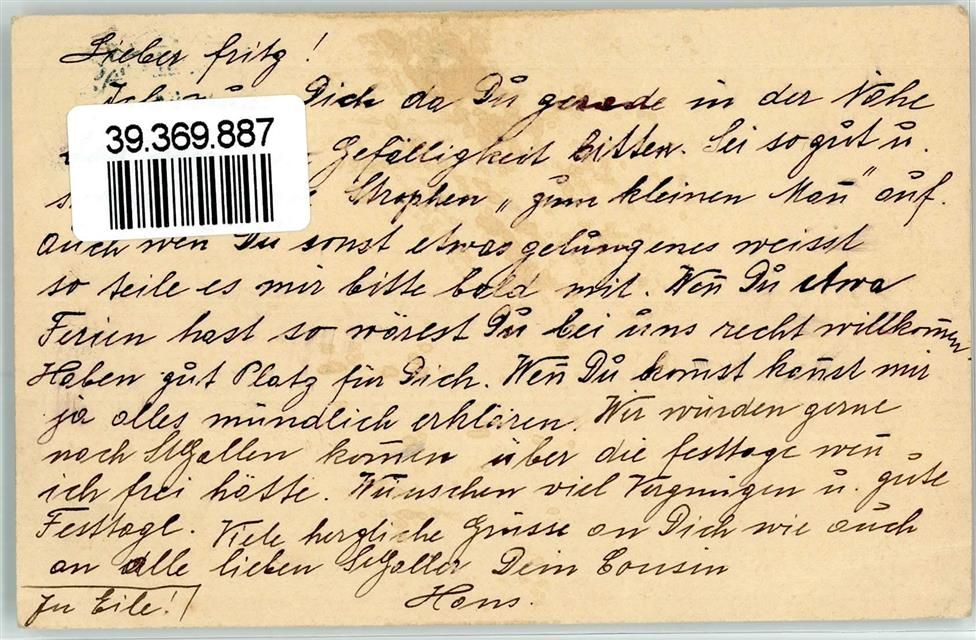 Lieber Fritz!
Dich da Du gerade in der Nähe
39.369.887
Gefälligkeit bitten. Sei so gut u.
Strophen „zum kleinen Man̄" auf.
Auch wen Du sonst etwas gelungenes weisst
so teile es mir bitte bald mit. Wen̄ Du etwa
Ferien hast so wärest Du bei uns recht willkom̄en
Haben gut Platz für Dich. Wen̄ Du kom̄st kan̄st mir
ja alles mündlich erklären. Wir würden gerne
nach St.Gallen kom̄en über die Festtage wen̄
ich frei hätte. Wünschen viel Vergnügen u. gute
Festtage. Viele herzliche Grüsse an Dich wie auch
an alle lieben St.Galler Dein Cousin
In Eile! Hans.